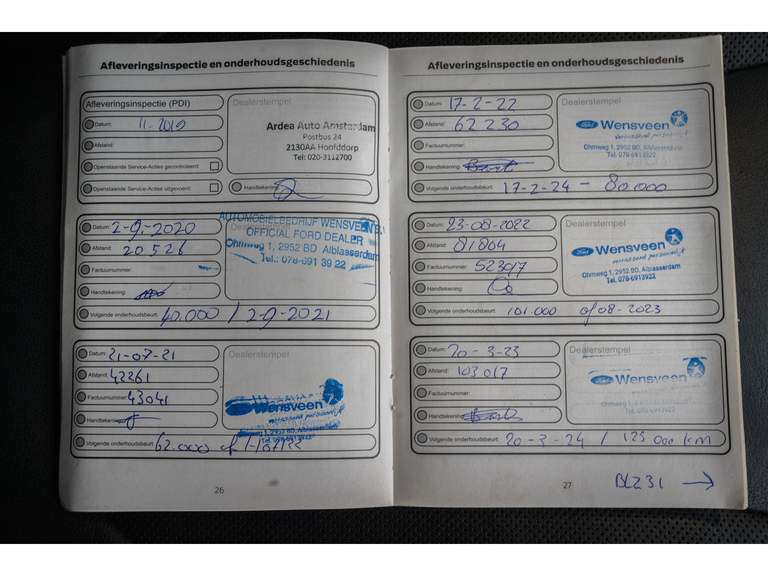 Afleveringsinspectie en onderhoudsgeschiedenis
Afleveringsinspectie (PDI)
Datum: 11-2019
Afstand:
Openstaande Service-Acties gecontroleerd:
Openstaande Service-Acties uitgevoerd:
Dealerstempel
Ardea Auto Amsterdam
Postbus 24
2130AA Hoofddorp
Tel: 020-3112700
Handtekening:
Datum: 2-9-2020
Afstand: 20526
Factuurnummer:
Handtekening:
AUTOMOBIELBEDRIJF WENSVEEN B.V.
OFFICIAL FORD DEALER
Ohmweg 1, 2952 BD Alblasserdam
Tel.: 078-691 39 22
Volgende onderhoudsbeurt: 40.000 / 2-9-2021
Datum: 21-07-21
Afstand: 42261
Factuurnummer: 43041
Handtekening:
Dealerstempel
Ford Wensveen
verrassend persoonlijk
Ohmweg 1, 2952 BD, Alblasserdam
Tel. 078-6913922
Volgende onderhoudsbeurt: 62.000 of
26
Afleveringsinspectie en onderhoudsgeschiedenis
Datum: 17-2-22
Afstand: 62230
Factuurnummer:
Handtekening:
Dealerstempel
Ford Wensveen
verrassend persoonlijk
Ohmweg 1, 2952 BD, Alblasserdam
Tel. 078-6913922
Volgende onderhoudsbeurt: 17-2-24 - 80.000
Datum: 23-08-2022
Afstand: 81804
Factuurnummer: 52307
Handtekening:
Dealerstempel
Ford Wensveen
verrassend persoonlijk
Ohmweg 1, 2952 BD, Alblasserdam
Tel. 078-6913922
Volgende onderhoudsbeurt: 101.000 of 08-2023
Datum: 20-3-23
Afstand: 103017
Factuurnummer:
Handtekening:
Dealerstempel
Ford Wensveen
verrassend persoonlijk
Ohmweg 1, 2952 BD, Alblasserdam
Tel. 078-6913922
Volgende onderhoudsbeurt: 20-3-24 / 125.000 km
27
BLZ 31 →